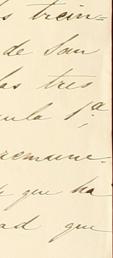 s trein=
de San
las tres
cula 1ª,
remune-
que ha
ad que